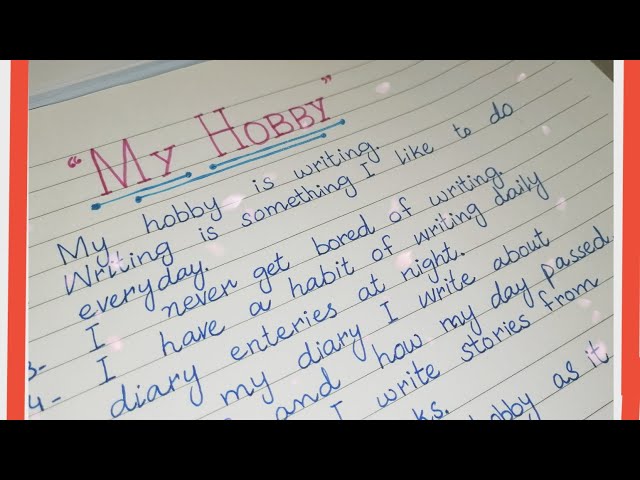 “My Hobby”
My hobby is writing.
Writing is something I like to do
everyday.
3- I never get bored of writing.
4- I have a habit of writing daily
diary enteries at night.
my diary I write about
and how my day passed.
I write stories from
hobby as it